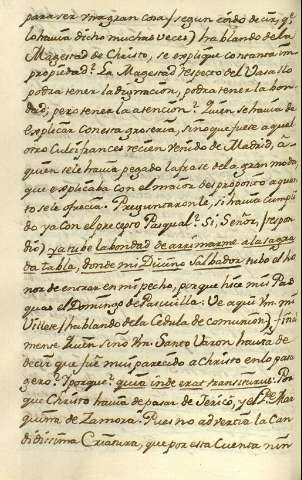 para ser vna gran cosa, (segun ẽ oydo decir, q.e
lo havia dicho muchas veces) hablando de la
Magestad de Christo, se explique con tanta im
propiedad? La Magestad respecto del Vasallo
podra tener la dignacion, podra tener la bon
dad; pero tener la atencion? Quien se havia de
explicar con esta groseria, sino que fuese aquel
otro Culti frances recien venido de Madrid, à
quien se le havia pegado la frase de la gran moda,
que explicaba con el maior desproposito aquan
to se le ofrecia. Preguntaronle, si havia cumpli
do ya con el precepto Pasqual? Si, Señor, (respon
dio) ya tube la bondad de arrimarme a la sagra
da tabla, donde mi Divino Salbador tubo el ho
nor de entrar en mi pecho, porque hice mis Pas
quas el Domingo de Pascuilla: Ve aqui Vm. mi
Villete (hablando de la Cedula de comunion) fi
mense Quien sino Vm. Santo Varon hauia de
decir que fue mui parecido a Christo en lo pasa
gero? Y porque? quia inde erat transiturus. Por
que Christo havia de pasar de Jericó, y el P.e Mar
quina de Zamora? Pues no advertia la Can
didissima Criatura, que por esta Cuenta nin